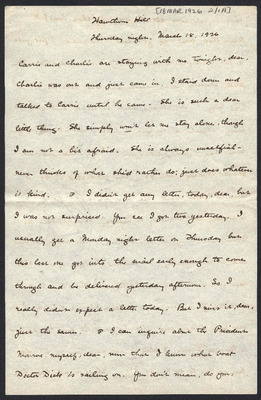 [18 MAR 1926 2/1A]
Hawthorn Hill
Thursday night. March 18, 1926
Carrie and Charlie are staying with me tonight, dear.
Charlie was out and just came in. I stayed down and
talked to Carrie until he came. She is such a dear
little thing. She simply won't let me stay alone, though
I am not a bit afraid. She is always unselfish -
never thinks of what she'd rather do; just does whatever
is kind. I didn't get any letter, today, dear, but
I was not surprised. You see I got two yesterday. I
usually get a Monday night letter on Thursday but
this last one got into the mail early enough to come
through and be delivered yesterday afternoon. So I
really didn't expect a letter today. But I miss it, dear,
just the same. I can inquire about the President
myself, dear, now that I know what boat
Doctor Dieb is sailing on. You don't mean, do you,